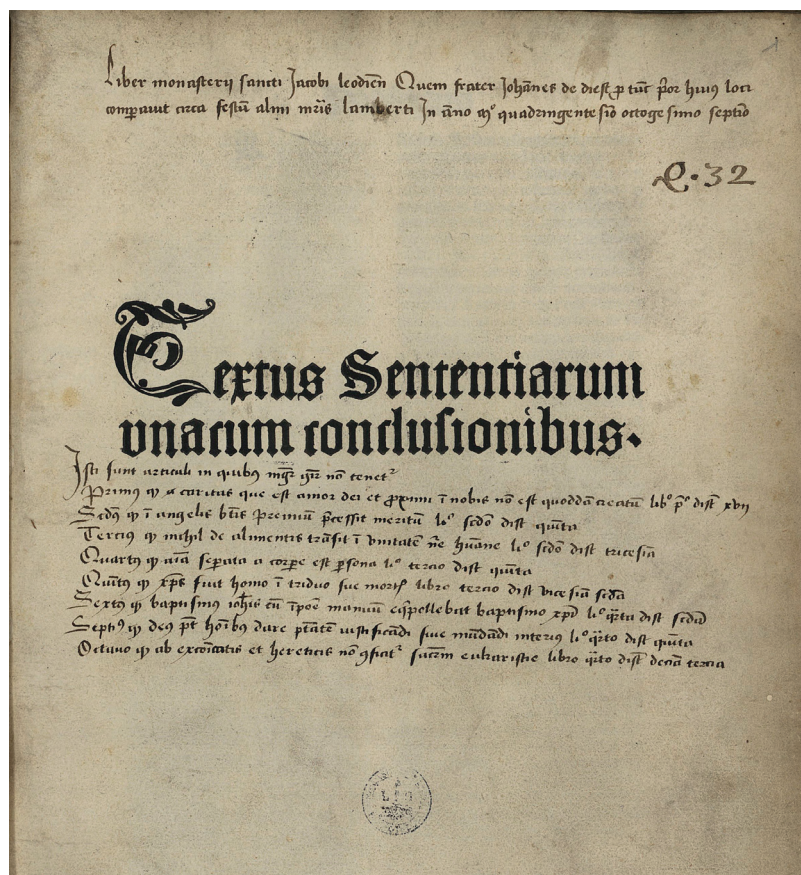 Liber monasterij sancti Jacobi leodieñ Quem frater Johãnes de diest p tũc p̃or huiꝰ loci
compauit circa festũ almi mr̃is lamberti In ãno mͦ quadringentesiõ octogesimo septiõ
E·32
Textus Sententiarum
vnacum conclusionibus.
Isti sunt articuli in quibꝫ mgr̃ nõ tenetᷣ
Primꝰ qꝫ caritas que est amor dei et proximi ĩ nobis nõ est quoddã creatũ libͦ pͦ dist̃ xvij
Scdꝰ qꝫ ĩ angelis bt̃is premiũ p̃cessit meritũ liͦ scdõ dist̃ quĩta
Tercius qꝫ nichil de alimentis trãsit ĩ vnitatẽ ñe humane liͦ scdõ dist̃ tricesia
Quartꝰ qꝫ aĩa sepata a corpe est psona liͦ tercio dist̃ quĩta
Quĩtꝰ qꝫ xpc̃ fuit homo ĩ triduo sue mortis libro tercio dist̃ vicesia scda
Sextꝰ qꝫ baptismus ioh̃is cũ ĩpoẽ manuũ eq̃pollebat baptismo xpi liͦ q̃rto dist̃ scda
Septiꝰ qꝫ deꝰ pt̃ hoĩbꝫ dare ptãtẽ iustificãdi siue mũdãdi interiꝰ liͦ q̃rto dist̃ quĩta
Octauo qꝫ ab excõicatis et hereticis nõ ꝯficitᷣ sacr̃m eukaristie libro q̃rto dist̃ decia tercia